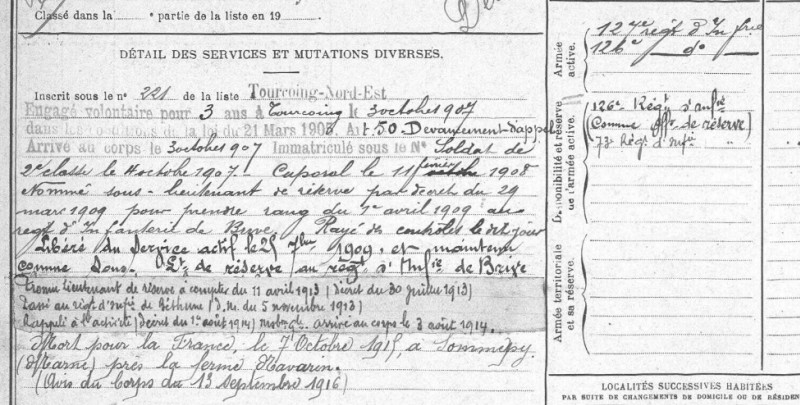 Classé dans la ........ partie de la liste en 19
DÉTAIL DES SERVICES ET MUTATIONS DIVERSES.
Inscrit sous le n° 221 de la liste Tourcoing-Nord-Est
Engagé volontaire pour 3 ans à Tourcoing le 3 octobre 1907
dans les conditions de la loi du 21 Mars 1905, Art. 50. Devancement d'appel
Arrivé au corps le 3 octobre 1907 Immatriculé sous le N° Soldat de
2e classe le 4 octobre 1907 - Caporal le 11 février 1908
Nommé sous-lieutenant de réserve par décret du 29
mars 1909 pour prendre rang du 1er avril 1909 au
regt d'Infanterie de Brive. Rayé des contrôles le dit jour
Libéré du Service actif le 25 7bre 1909 et maintenu
comme Sous-Lt de réserve au régt d'Infie de Brive
Promu lieutenant de réserve à compter du 11 avril 1913 (décret du 30 juillet 1913)
Passé au régt d'Infie de Béthune (D. M. du 5 novembre 1913)
Rappelé à l'activité (Décret du 1er août 1914) arrivé au corps le 3 août 1914.
Mort pour la France, le 7 Octobre 1915, à Sommepy
(Marne) près la ferme Navarin.
(Avis du Corps du 13 Septembre 1916)
Armée active.
127e régt d'Infrie
126e do
Disponibilité et réserve de l'armée active.
126e Régt d'Infie
(comme Off. de réserve)
73e Régt d'Infie "
Armée territoriale et sa réserve.
LOCALITÉS SUCCESSIVES HABITÉES
PAR SUITE DE CHANGEMENTS DE DOMICILE OU DE RÉSIDEN